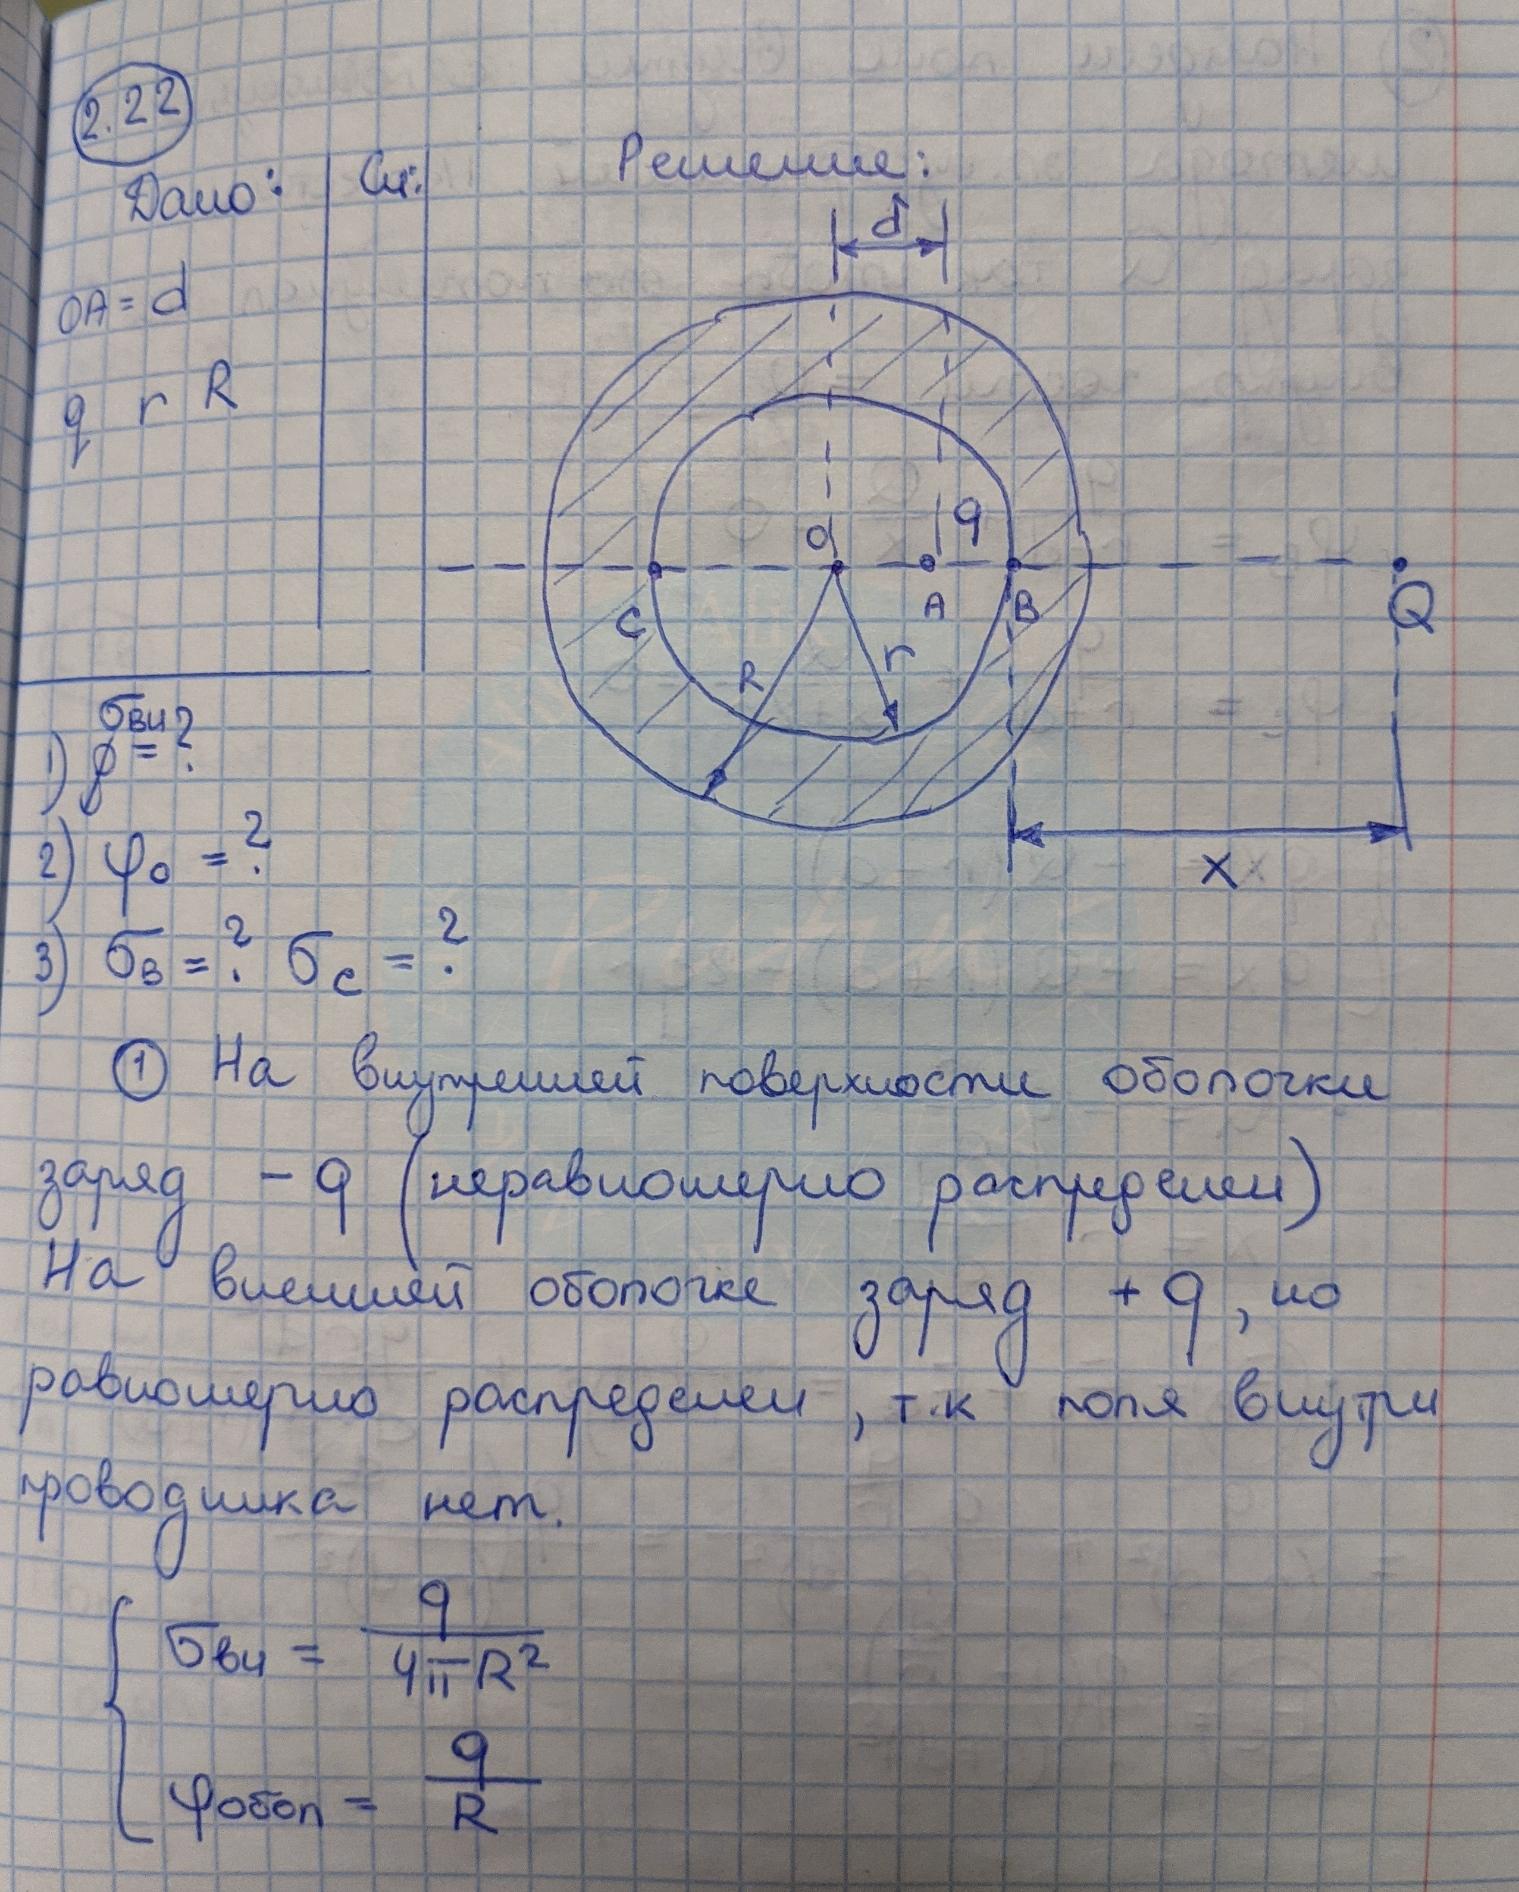 2.22
Дано: Си: Решение:
d
OA = d
q r R
O q
C A B Q
R r
σвн?
1) φ = ?
x
2) φ₀ = ?
3) σB = ? σC = ?
① На внутренней поверхности оболочки
заряд - q (неравномерно распределен)
На внешней оболочке заряд + q, но
равномерно распределен, т.к поля внутри
проводника нет.
σвн = q / 4πR²
φобол = q / R